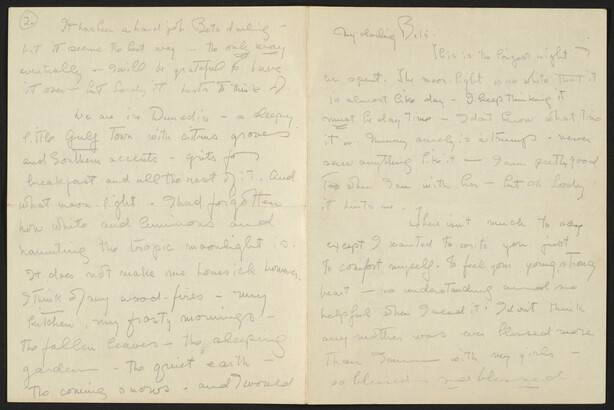 My darling Bets -
This is the longest night I
ever spent. The moon light is so white that it
is almost like day - I keep thinking it
must be day time - I don't know what time
it is. Mummy surely is a trump - never
saw anything like it - I am pretty good
too when I am with her - but oh Lordy
it hurts so.
There isn't much to say
except I wanted to write you just
to comfort myself. To feel your young strong
heart - so understanding and so
helpful when I need it. I don't think
any mother was ever blessed more
than I am with my girls -
so blessed so blessed
2
It has been a hard job Bets darling -
but it seems the best way - the only way
eventually - I will be grateful to have
it over - but Lordy it hurts to think of
We are in Dunedin - a sleepy
little Gulf Town with citrus groves
and Southern accents - grits for
breakfast and all the rest of it. And
what moon-light. I had forgotten
how white and luminous and
haunting the tropic moonlight is.
It does not make me homesick however.
I think of my wood-fires - my
kitchen, my frosty mornings -
the fallen leaves - the sleeping
garden - the quiet earth -
the coming snows - and I would